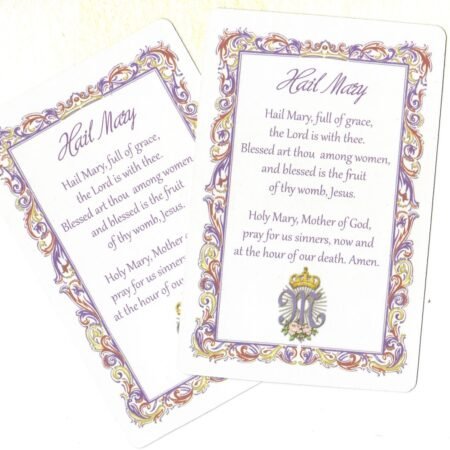 Hail Mary
Hail Mary, full of grace,
the Lord is with thee.
Blessed art thou among women,
and blessed is the fruit
of thy womb, Jesus.
Holy Mary, Mother
pray for us
at the hour of our
Hail Mary
Hail Mary, full of grace,
the Lord is with thee.
Blessed art thou among women,
and blessed is the fruit
of thy womb, Jesus.
Holy Mary, Mother of God,
pray for us sinners, now and
at the hour of our death. Amen.